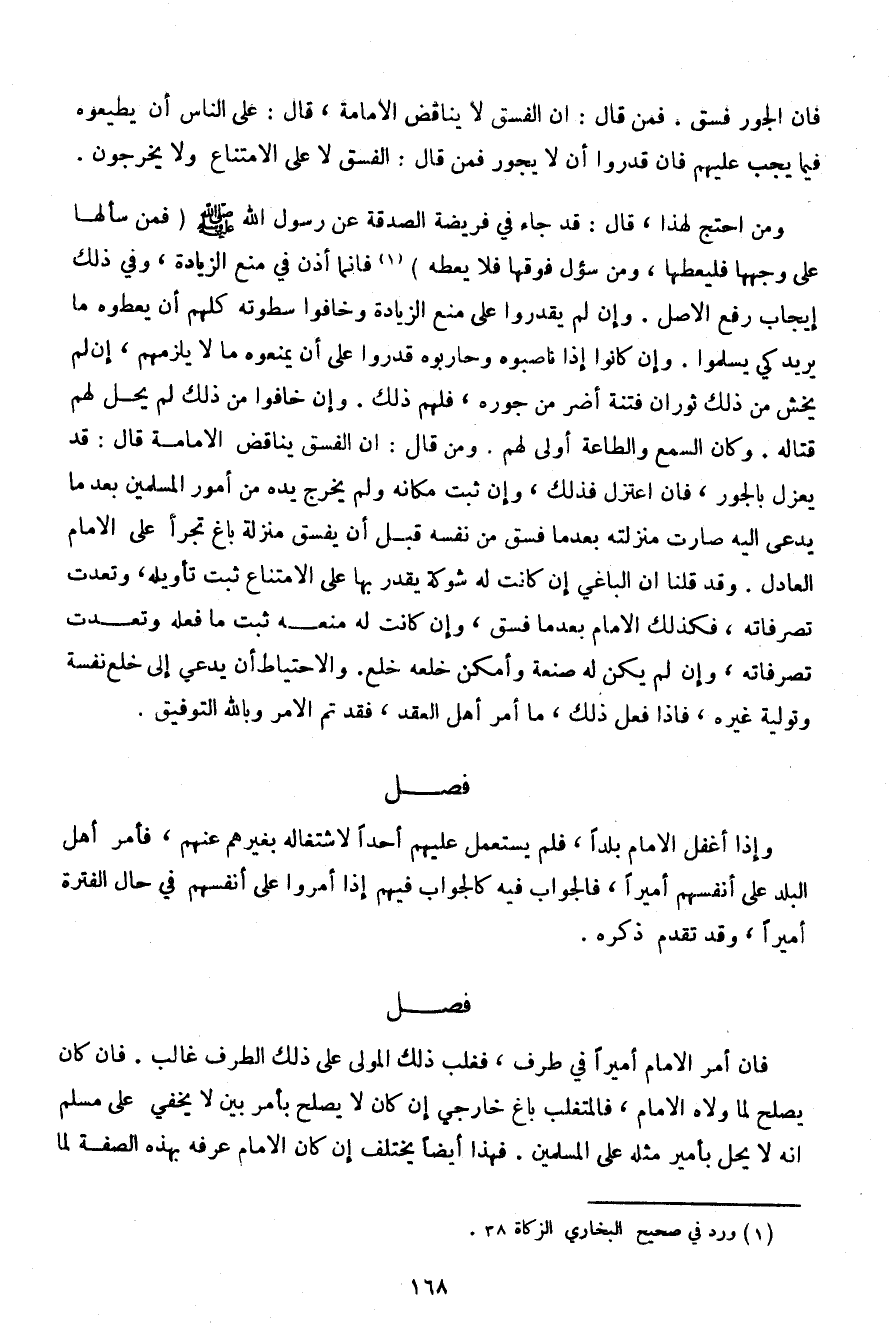 فان الجور فسق . فمن قال : ان الفسق لا يناقض الامامة ، قال : على الناس أن يطيعوه
فيما يجب عليهم فان قدروا أن لا يجور فمن قال : الفسق لا على الامتناع ولا يخرجون .
ومن احتج لهذا ، قال : قد جاء في فريضة الصدقة عن رسول الله ﷺ ( فمن سألها
على وجهها فليعطها ، ومن سؤل فوقها فلا يعطه ) (١) فانما أذن في منع الزيادة ، وفي ذلك
إيجاب رفع الاصل . وإن لم يقدروا على منع الزيادة وخافوا سطوته كلهم أن يعطوه ما
يريد كي يسلموا . وإن كانوا إذا ناصبوه وحاربوه قدروا على أن يمنعوه ما لا يلزمهم ، إن لم
يخش من ذلك ثوران فتنة أضر من جوره ، فلهم ذلك . وإن خافوا من ذلك لم يحـل لهم
قتاله . وكان السمع والطاعة أولى لهم . ومن قال : ان الفسق يناقض الامامـة قال : قد
يعزل بالجور ، فان اعتزل فذلك ، وإن ثبت مكانه ولم يخرج يده من أمور المسلمين بعد ما
يدعى اليه صارت منزلته بعدما فسق من نفسه قبـل أن يفسق منزلة باغ تجرأ على الامام
العادل . وقد قلنا ان الباغي إن كانت له شوكة يقدر بها على الامتناع ثبت تأويله، وتعدت
تصرفاته ، فكذلك الامام بعدما فسق ، وإن كانت له منعـه ثبت ما فعله وتعـدت
تصرفاته ، وإن لم يكن له صنعة وأمكن خلعه خلع. والاحتياط أن يدعي إلى خلع نفسة
وتولية غيره ، فاذا فعل ذلك ، ما أمر أهل العقد ، فقد تم الامر وبالله التوفيق .
فصـل
وإذا أغفل الامام بلداً ، فلم يستعمل عليهم أحداً لاشتغاله بغيرهم عنهم ، فأمر أهل
البلد على أنفسهم أميراً ، فالجواب فيه كالجواب فيهم إذا أمروا على أنفسهم في حال الفترة
أميراً ، وقد تقدم ذكره .
فصـل
فان أمر الامام أميراً في طرف ، فغلب ذلك المولى على ذلك الطرف غالب . فان كان
يصلح لما ولاه الامام ، فالمتغلب باغ خارجي إن كان لا يصلح بأمر بين لا يخفي على مسلم
انه لا يحل بأمير مثله على المسلمين . فهذا أيضاً يختلف إن كان الامام عرفه بهذه الصفـة لما
(١) ورد في صحيح البخاري الزكاة ٣٨ .
١٦٨